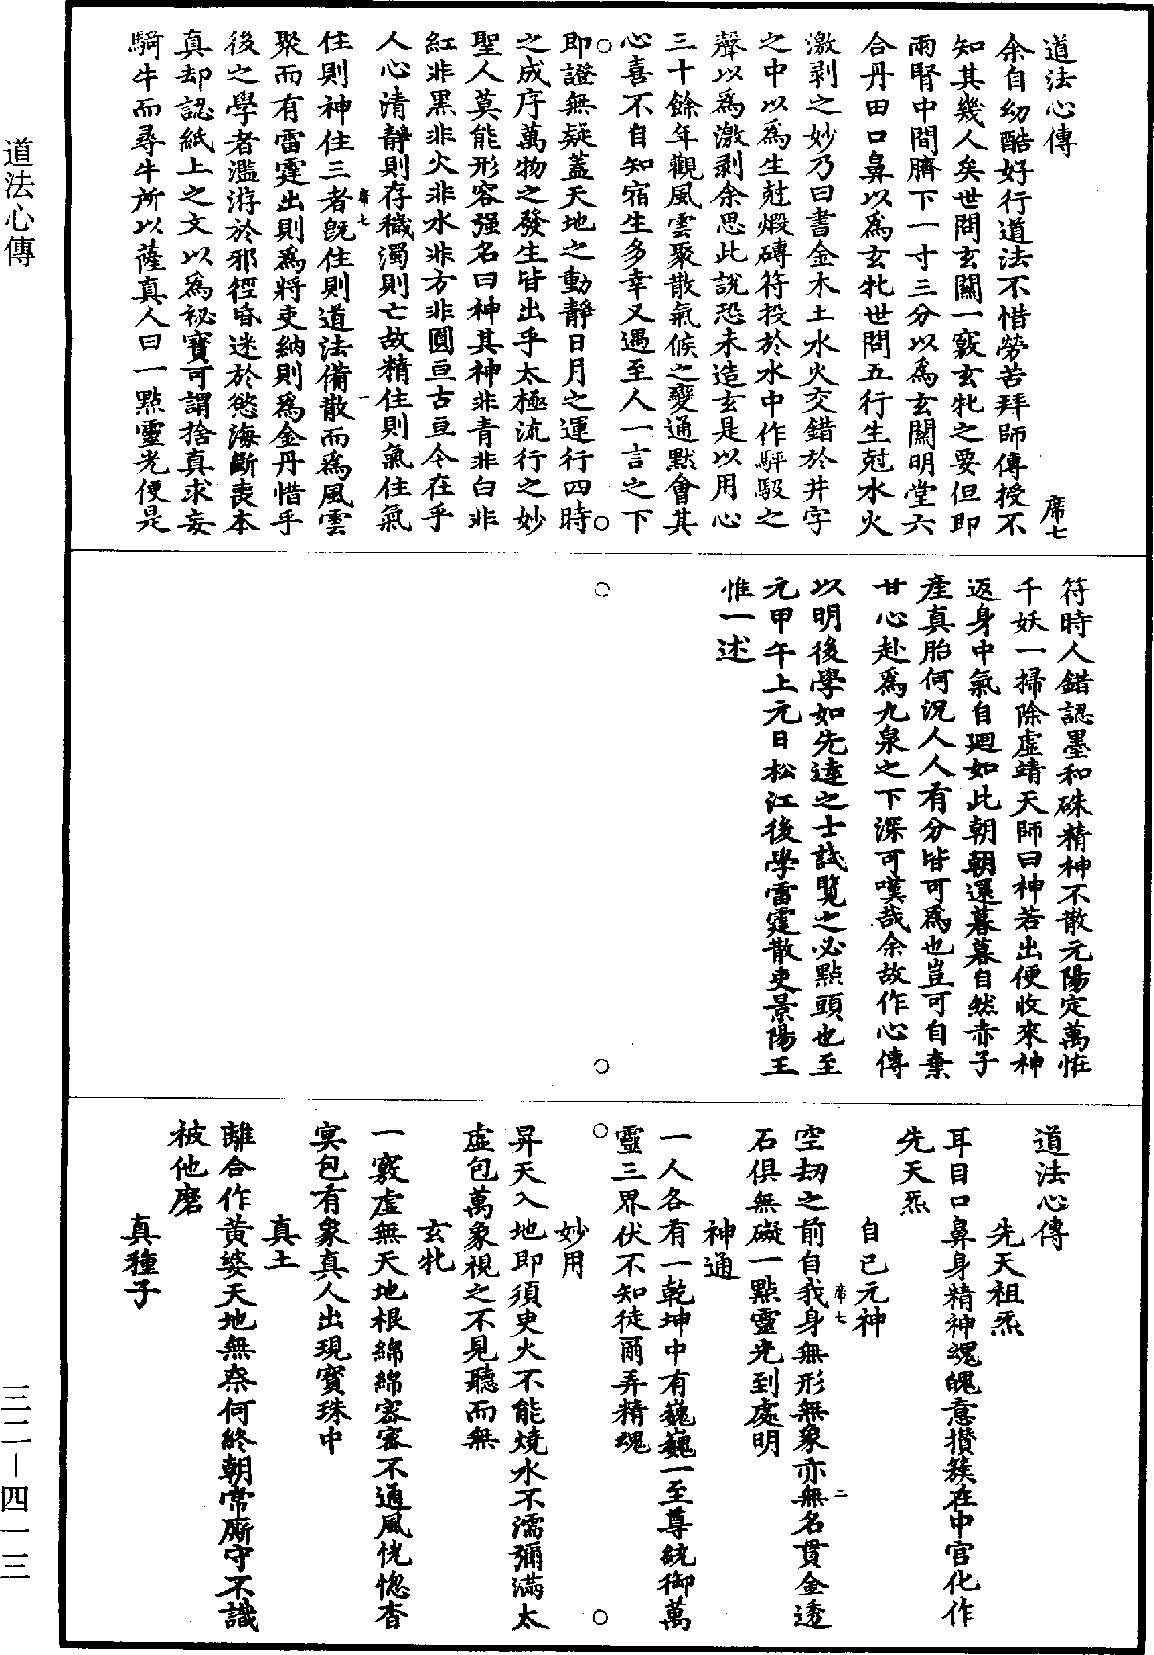 道法心傳
席七
余自幼酷好行道法不惜勞苦拜師傳授不
知其幾人矣世間玄關一竅玄牝之要但即
兩腎中間臍下一寸三分以為玄關明堂六
合丹田口鼻以為玄牝世間五行生尅水火
激剥之妙乃曰書金木土水火交錯於井字
之中以為生尅煅磚符投於水中作砰駁之
聲以為激剥余思此說恐未造玄是以用心
三十餘年觀風雲聚散氣候之變通默會其
心喜不自知宿生多幸又遇至人一言之下
即證無疑蓋天地之動靜日月之運行四時
之成序萬物之發生皆出乎太極流行之妙
聖人莫能形容强名曰神其神非青非白非
紅非黑非火非水非方非圓亘古亘今在乎
人心清靜則存穢濁則亡故精住則氣住氣
席七
一
住則神住三者旣住則道法備散而為風雲
聚而有雷霆出則為將吏納則為金丹惜乎
後之學者濫游於邪徑昏迷於慾海斷喪本
真却認紙上之文以為秘寶可謂捨真求妄
騎牛而尋牛所以薩真人曰一點靈光便是
符時人錯認墨和硃精神不散元陽定萬怪
千妖一掃除虛靖天師曰神若出便收來神
返身中氣自迴如此朝朝還暮暮自然赤子
產真胎何況人人有分皆可為也豈可自棄
甘心赴為九泉之下深可嘆哉余故作心傳
以明後學如先達之士試覽之必點頭也至
元甲午上元日松江後學雷霆散吏景陽王
惟一述
道法心傳
先天祖炁
耳目口鼻身精神魂魄意攢簇在中宮化作
先天炁
自己元神
空劫之前自我身無形無象亦無名貫金透
石俱無礙一點靈光到處明
席七
二
神通
一人各有一乾坤中有巍巍一至尊統御萬
靈三界伏不知徒爾弄精魂
妙用
昇天入地即須臾火不能燒水不濡彌滿太
虛包萬象視之不見聽而無
玄牝
一竅虛無天地根綿綿密密不通風恍惚杳
冥包有象真人出現寶珠中
真土
離合作黃婆天地無奈何終朝常廝守不識
被他磨
真種子
道法心傳
三二－四一三